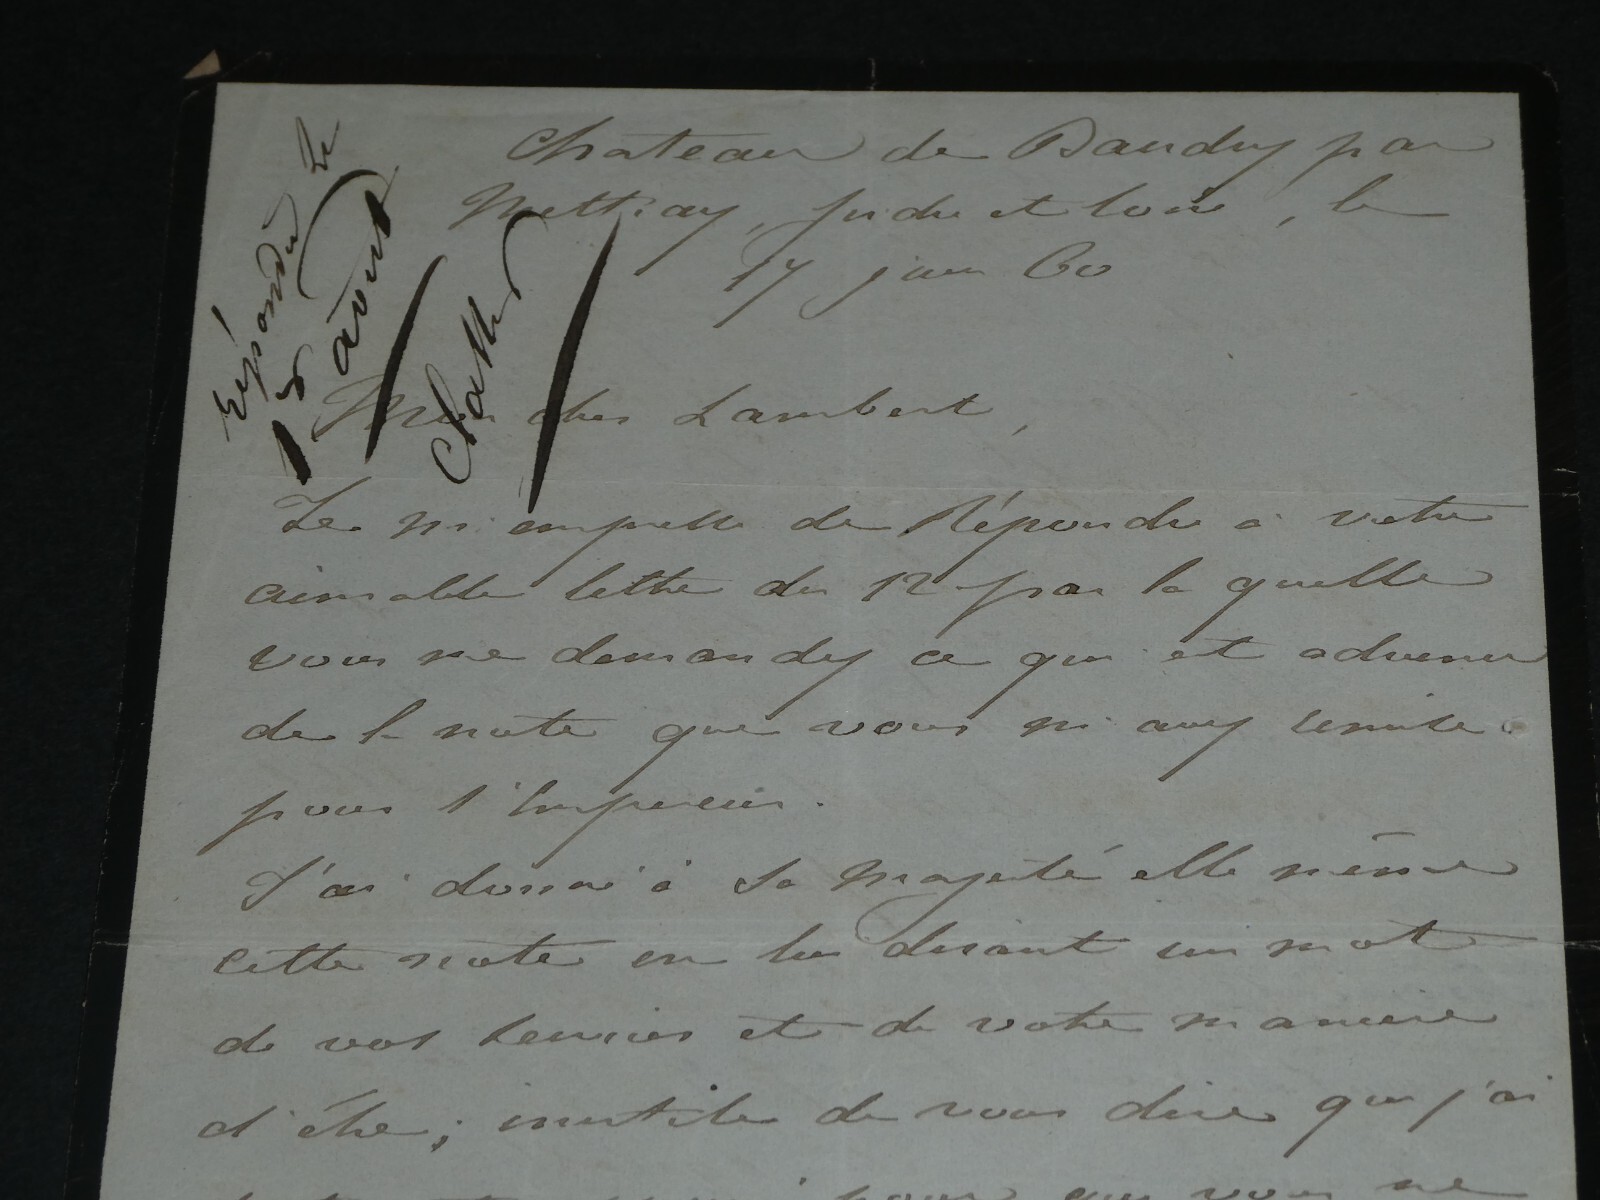 Répondu le
15 août
Château de Baudry par
Mettray, Indre et Loire, le
17 juin 60
Mon cher Lambert,
Je m'empresse de Répondre à votre
aimable lettre du 12 par la quelle
vous me demandez ce qui est advenu
de la note que vous m'avez remise
pour l'Empereur.
J'ai donné à Sa Majesté elle même
cette note en lui disant un mot
de vos services et de votre manière
d'être; inutile de vous dire que j'ai
pour que vous ne